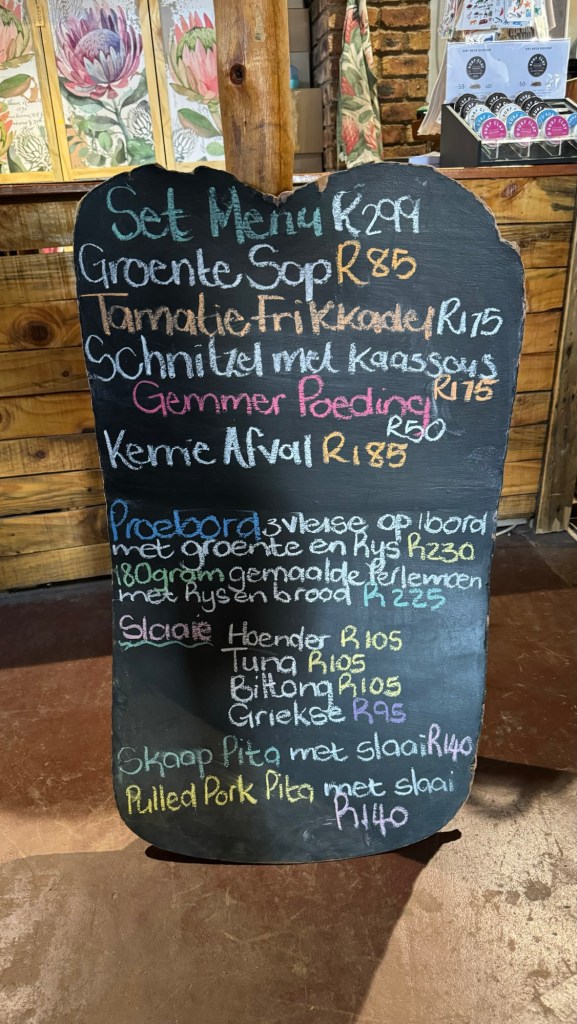 Set Menu R299
Groente Sop R85
Tamatie Frikkadel R175
Schnitzel met Kaassous
R175
Gemmer Poeding
R50
Kerrie Afval R185
Proebord 3 vleise op 1 bord
met groente en Rys R230
180gram gemaalde Perlemoen
met Rys en brood R225
Slaaie Hoender R105
Tuna R105
Biltong R105
Griekse R95
Skaap Pita met slaai R140
Pulled Pork Pita met slaai
R140